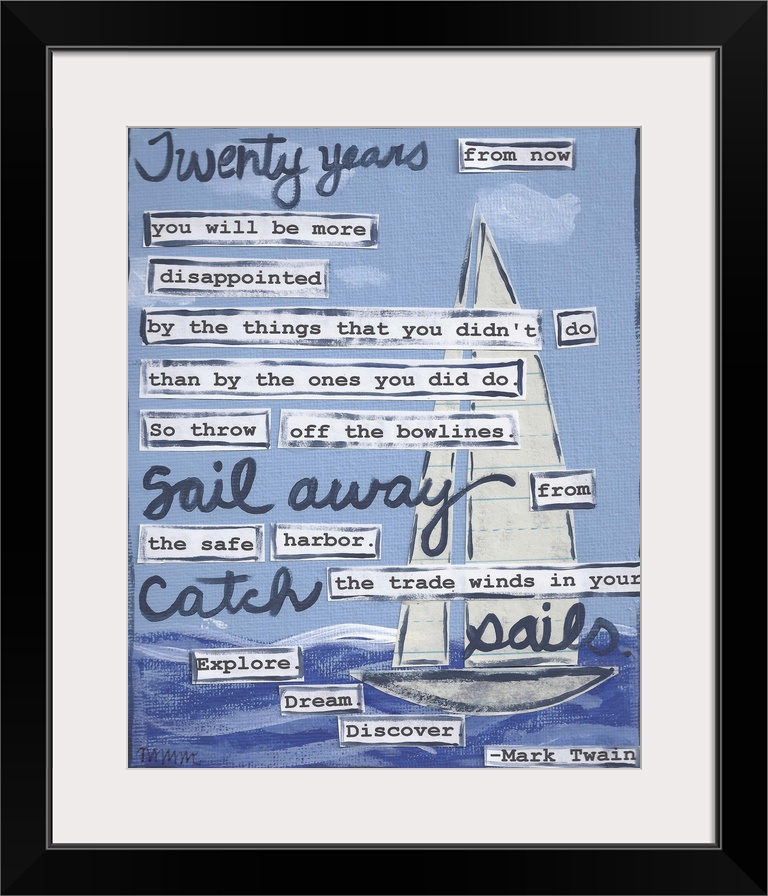 Twenty years from now
you will be more
disappointed
by the things that you didn't do
than by the ones you did do.
So throw off the bowlines.
Sail away from
the safe harbor.
Catch the trade winds in your
sails.
Explore.
Dream.
Discover
-Mark Twain